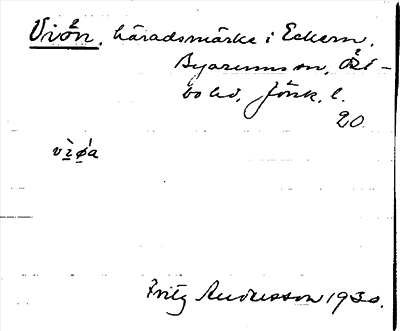 Viön, häradsmärke i Eckern,
Byarums sn, Öst-
bo hd, Jönk. l.
20
viøa
Fritz Andersson 1930.